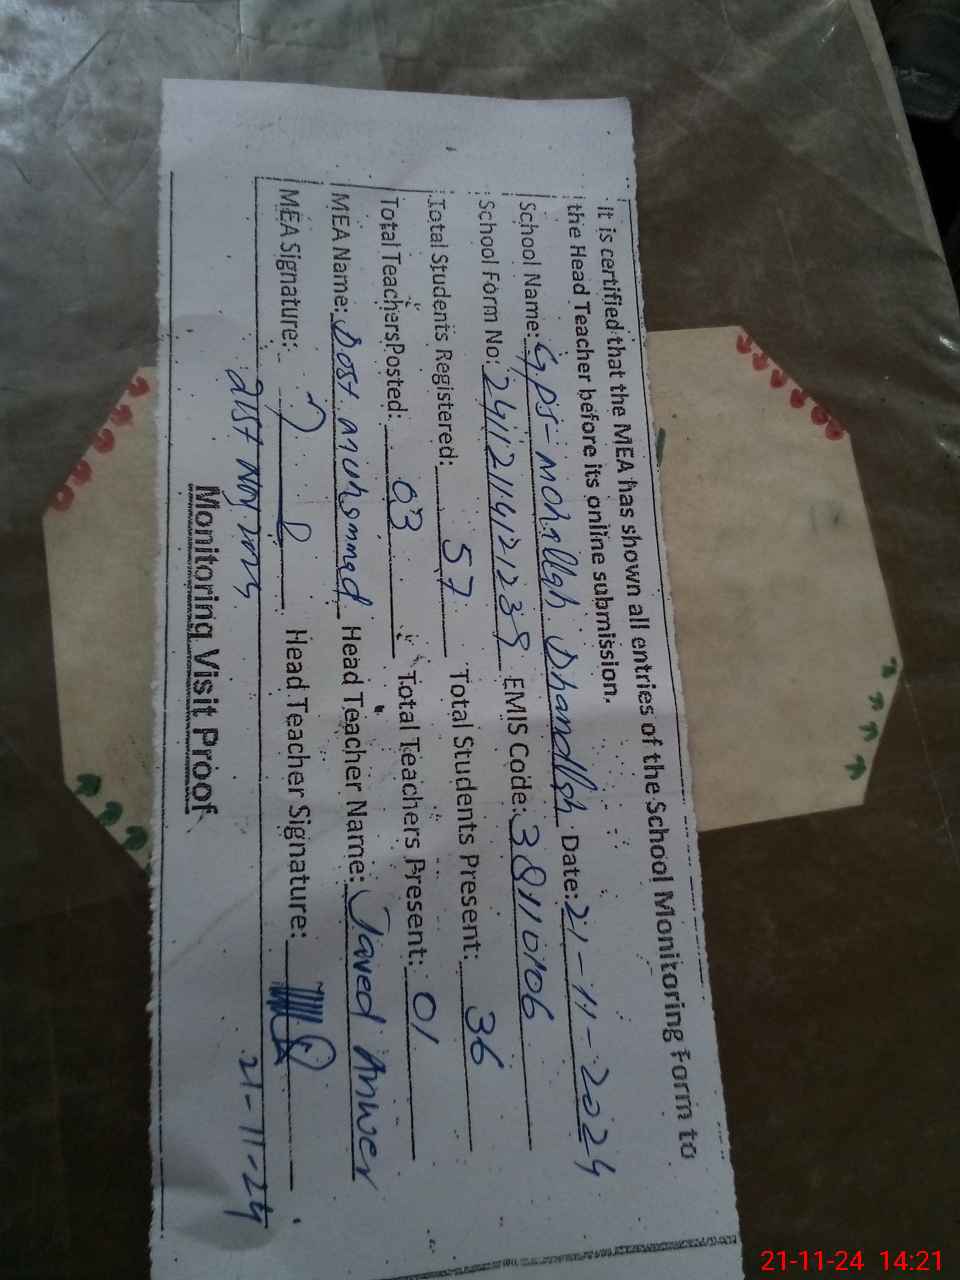 It is certified that the MEA has shown all entries of the School Monitoring Form to
the Head Teacher before its online submission.
School Name: GPS-Mohallah Dhandlah Date: 21-11-2024
School Form No: 241121141239 EMIS Code: 38110106
Total Students Registered: 57 Total Students Present: 36
Total Teachers Posted: 03 Total Teachers Present: 01
MEA Name: Dost Muhammad Head Teacher Name: Javed Anwer
MEA Signature: Head Teacher Signature:
21st Nov 2024 21-11-24
Monitoring Visit Proof
21-11-24 14:21